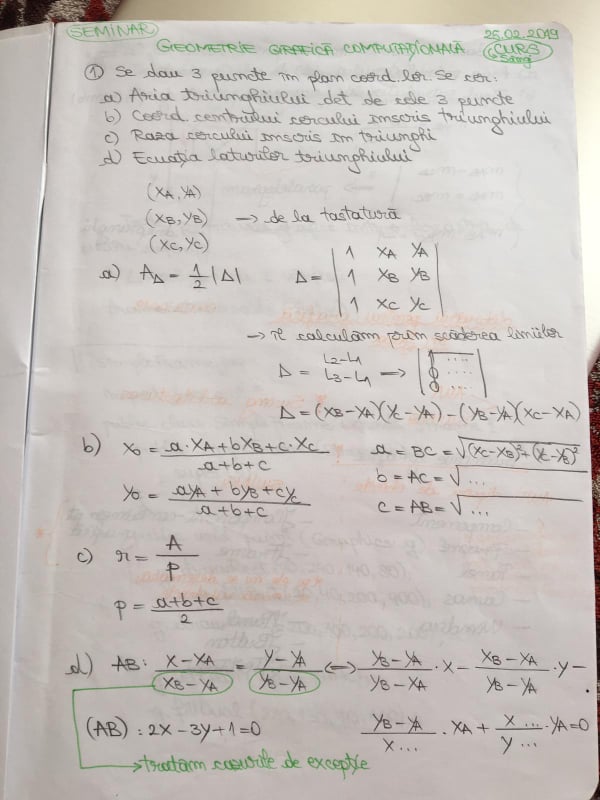 SEMINAR 25.02.2019
GEOMETRIE GRAFICĂ COMPUTAȚIONALĂ CURS
① Se dau 3 puncte în plan coord lor. Se cer:
a) Aria triunghiului det de cele 3 puncte
b) Coord centrului cercului înscris triunghiului
c) Raza cercului înscris în triunghi
d) Ecuația laturilor triunghiului
(XA, YA)
(XB, YB) → de la tastatură
(XC, YC)
a) A△ = 1/2 |Δ| Δ = | 1 XA YA |
| 1 XB YB |
| 1 XC YC |
→ îl calculăm prin scăderea liniilor
Δ = L2-L1
L3-L1 → | 1 .... |
| 0 .... |
| 0 .... |
Δ = (XB-XA)(YC-YA) - (YB-YA)(XC-XA)
b) X0 = (a·XA + bXB + c·XC) / (a+b+c) a = BC = √((XC-XB)²+(YC-YB)²)
b = AC = √...
Y0 = (aYA + bYB + cYC) / (a+b+c) c = AB = √...
c) r = A/P
P = (a+b+c)/2
d) AB: (X-XA)/(XB-YA) = (Y-YA)/(YB-YA) ⟺ (YB-YA)/(YB-XA) · X - (XB-XA)/(YB-YA) · Y -
(AB): 2X-3Y+1=0 (YB-YA)/(X...) · XA + (X...)/(Y...) · YA = 0
→ tratăm cazurile de excepție